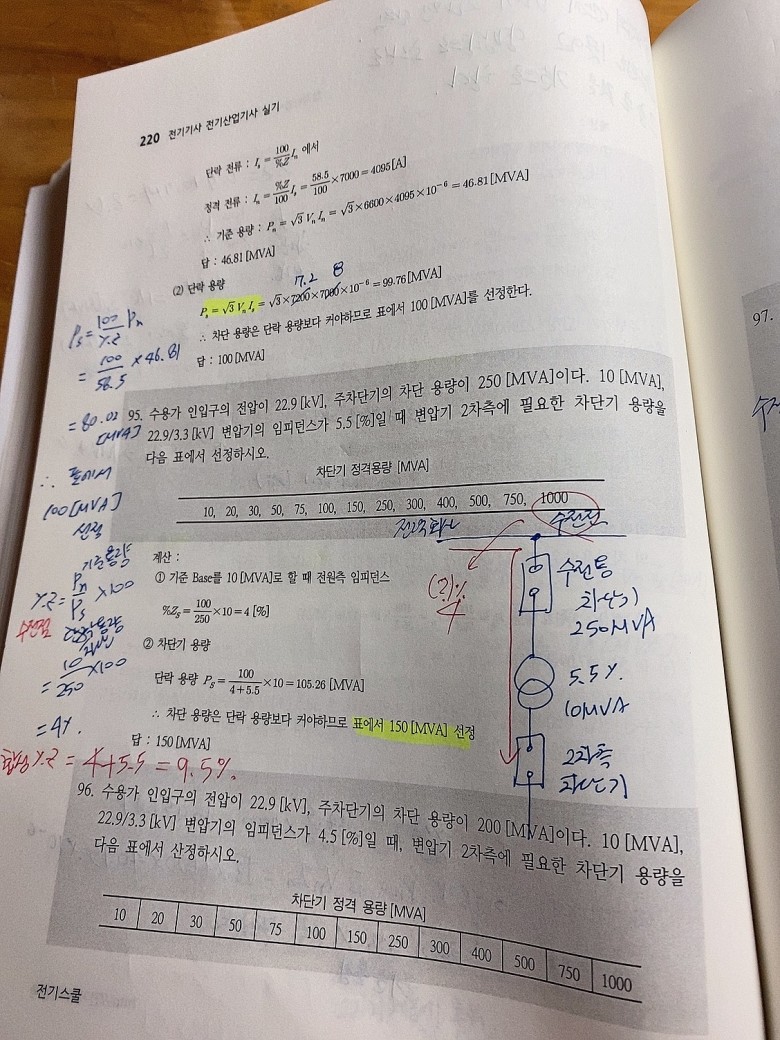 220 전기기사 전기산업기사 실기
단락 전류 : I_s = 100/%Z I_n 에서
정격 전류 : I_n = %Z/100 I_s = 58.5/100 ×7000 = 4095[A]
∴ 기준 용량 : P_n = √3 V_n I_n = √3×6600×4095×10⁻⁶ = 46.81[MVA]
답 : 46.81[MVA]
(2) 단락 용량
7.2 8
P_s = √3 V_n I_s = √3×7200×7000×10⁻⁶ = 99.76[MVA]
∴ 차단 용량은 단락 용량보다 커야하므로 표에서 100[MVA]를 선정한다.
답 : 100[MVA]
P_s = 100/%Z P_n
= 100/58.5 × 46.81
= 80.02
[MVA]
∴ 표에서
100[MVA]
선정
95. 수용가 인입구의 전압이 22.9[kV], 주차단기의 차단 용량이 250[MVA]이다. 10[MVA],
22.9/3.3[kV] 변압기의 임피던스가 5.5[%]일 때 변압기 2차측에 필요한 차단기 용량을
다음 표에서 선정하시오.
차단기 정격용량[MVA]
10, 20, 30, 50, 75, 100, 150, 250, 300, 400, 500, 750, 1000
수전점
계산 :
① 기준 Base를 10[MVA]로 할 때 전원측 임피던스
%Z_s = 100/250 ×10 = 4[%]
② 차단기 용량
단락 용량 P_s = 100/4+5.5 ×10 = 105.26[MVA]
∴ 차단 용량은 단락 용량보다 커야하므로 표에서 150[MVA] 선정
답 : 150[MVA]
기준용량
%Z = P_n/P_s ×100
수전점 단락용량
= 10/250 ×100
= 4%
합성 %Z = 4+5.5 = 9.5%
(?)%
4
수전통
차단기
250MVA
5.5%
10MVA
2차측
차단기
96. 수용가 인입구의 전압이 22.9[kV], 주차단기의 차단 용량이 200[MVA]이다. 10[MVA],
22.9/3.3[kV] 변압기의 임피던스가 4.5[%]일 때, 변압기 2차측에 필요한 차단기 용량을
다음 표에서 산정하시오.
차단기 정격 용량[MVA]
10 20 30 50 75 100 150 250 300 400 500 750 1000
전기스쿨
97.